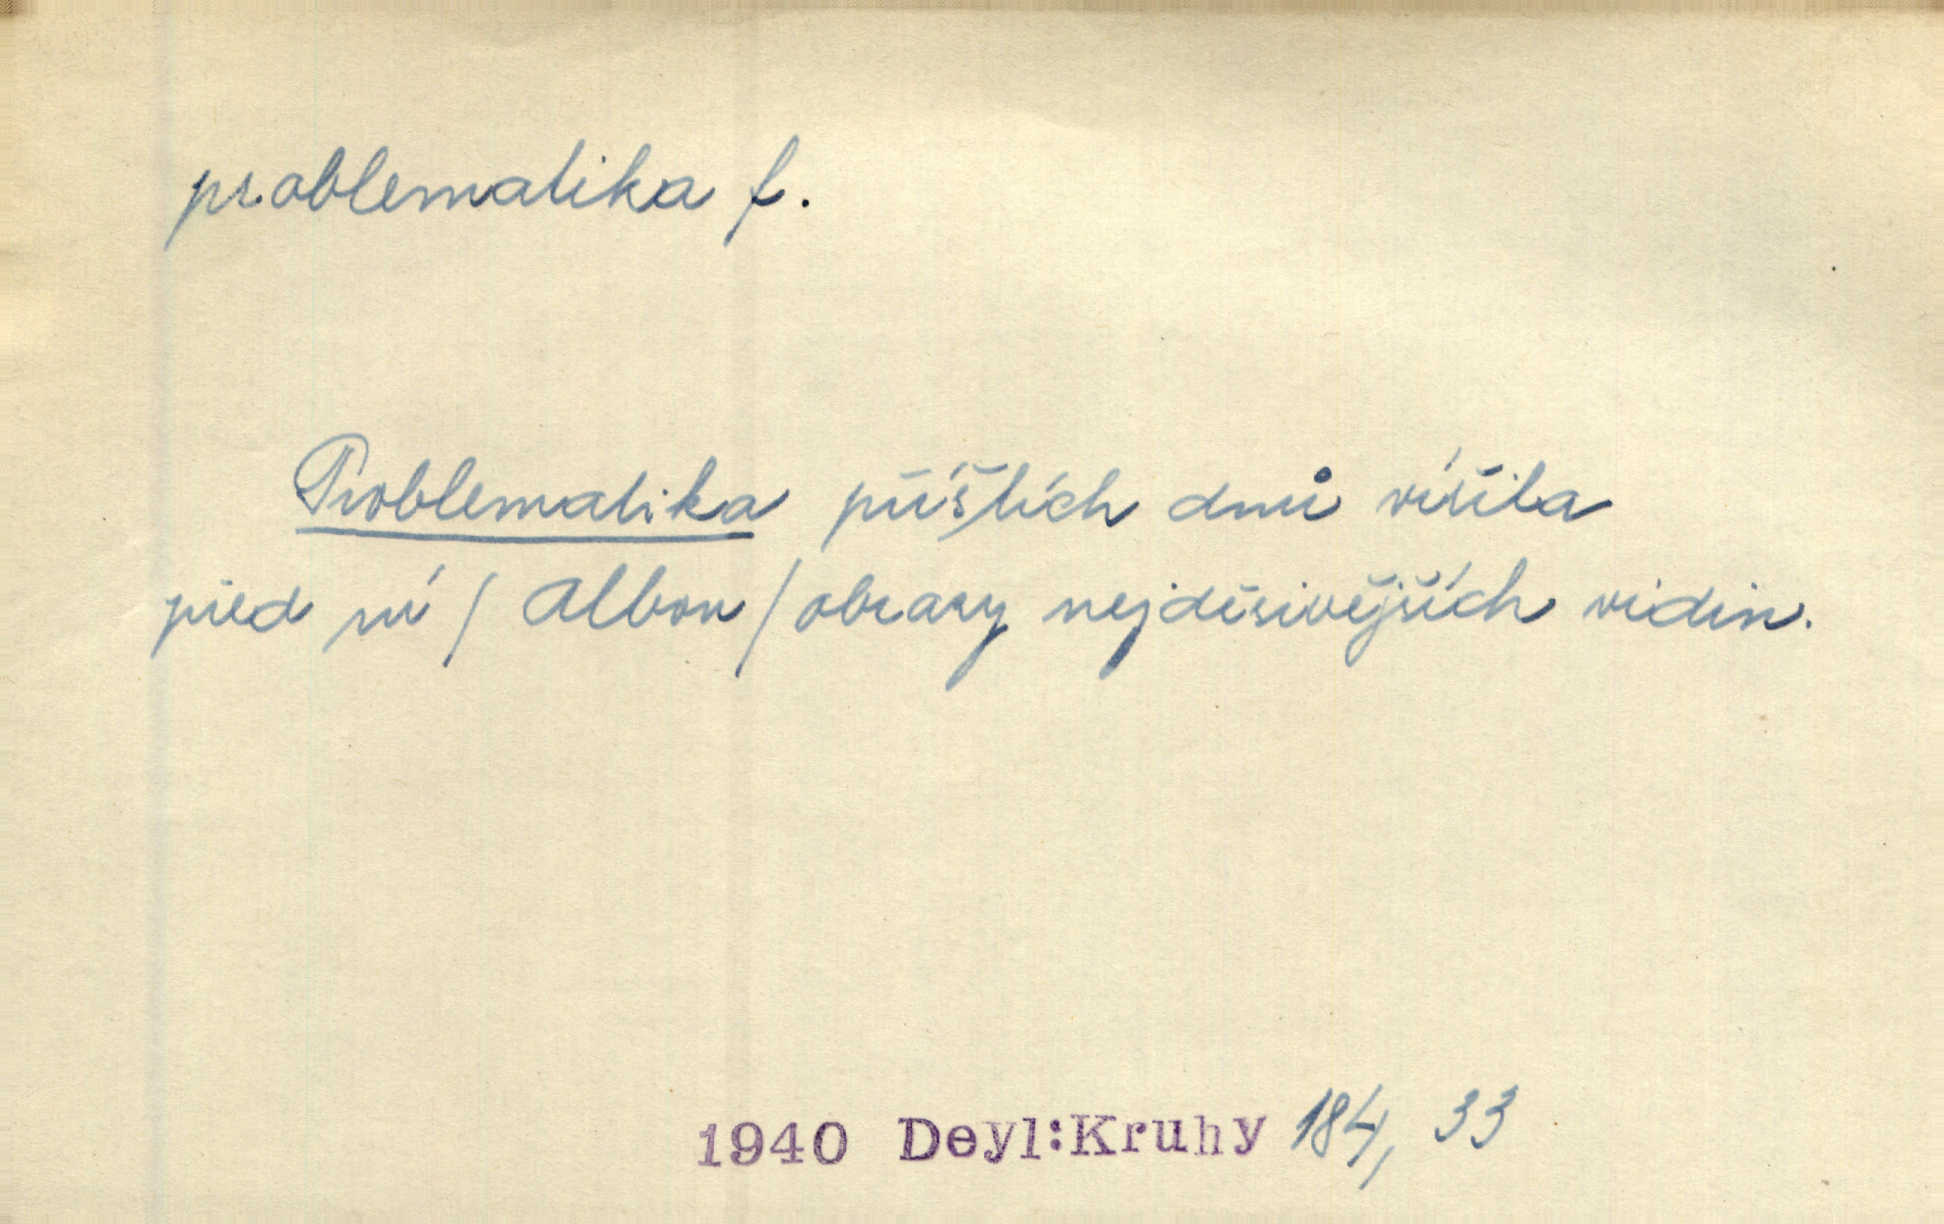 problematika f.
Problematika příštích dnů vířila
před ní / Albou / obrazy nejděsivějších vidin.
1940 Deyl:Kruhy 184, 33